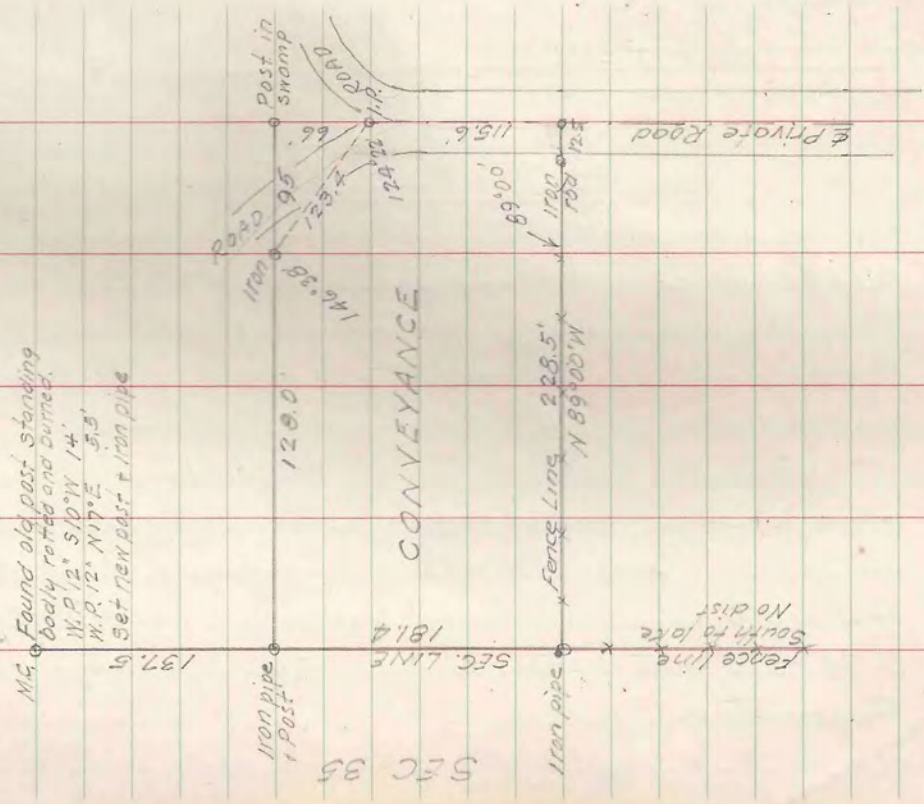 M.C. Found old post standing
badly rotted and burned.
W.P. 12" S10°W 14'
W.P. 12" N17°E 5.5'
Set new post + iron pipe
137.5
Iron pipe
+ Post
128.0
Iron
146°38'
ROAD
95
123.4
66
Post in
swamp
ROAD
I.P.
124°22'
CONVEYANCE
115.6
SEC. LINE
181.4
SEC 35
Iron pipe
Fence Line 228.5'
N 89°00'W
89°00'
Iron
rod
12.5
₵ Private Road
Fence Line
South to lake
No dist